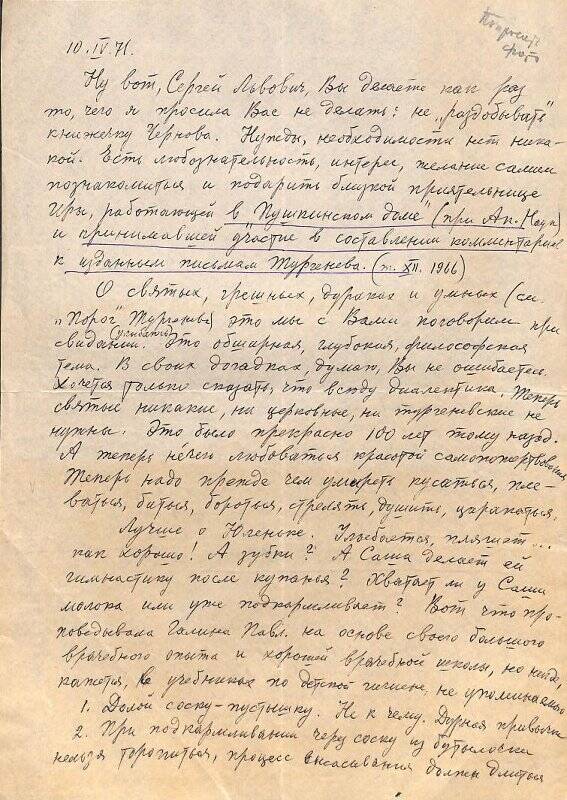 Попросить
фото
10.IV.71.
Ну вот, Сергей Львович, Вы делаете как раз
то, чего я просила Вас не делать: не „раздобывать"
книжечку Чернова. Нужды, необходимости нет ника-
кой. Есть любознательность, интерес, желание самим
познакомиться и подарить близкой приятельнице
Иры, работающей в „Пушкинском доме" (при Ак. Наук)
и принимавшей участие в составлении комментариев
к изданным письмам Тургенева. (т. XII. 1966)
О святых, грешных, дураках и умных (см.
„Порог" Тургенева) это мы с Вами поговорим при
свидании. (устно) Это обширная, глубокая, философская
тема. В своих догадках, думаю, Вы не ошибаетесь.
Хочется только сказать, что всюду диалектика. Теперь
святые никакие, ни церковные, ни тургеневские не
нужны. Это было прекрасно 100 лет тому назад.
А теперь нечего любоваться красотой самопожертвования
Теперь надо прежде чем умереть кусаться, пле-
ваться, биться, бороться, стрелять, душить, царапаться.
Лучше о Юленьке. Улыбается, пляшет...
как хорошо! А зубки? А Саша делает ей
гимнастику после купанья? Хватает ли у Саши
молока или уже подкармливает? Вот что про-
поведывала Галина Павл. на основе своего большого
врачебного опыта и хорошей врачебной школы, но нигде,
кажется, в учебниках по детской гигиене, не упоминаемого
1. Долой соску-пустышку. Не к чему. Дурная привычка
2. При подкармливании через соску из бутылочки
нельзя торопиться, процесс высасывания должен длиться